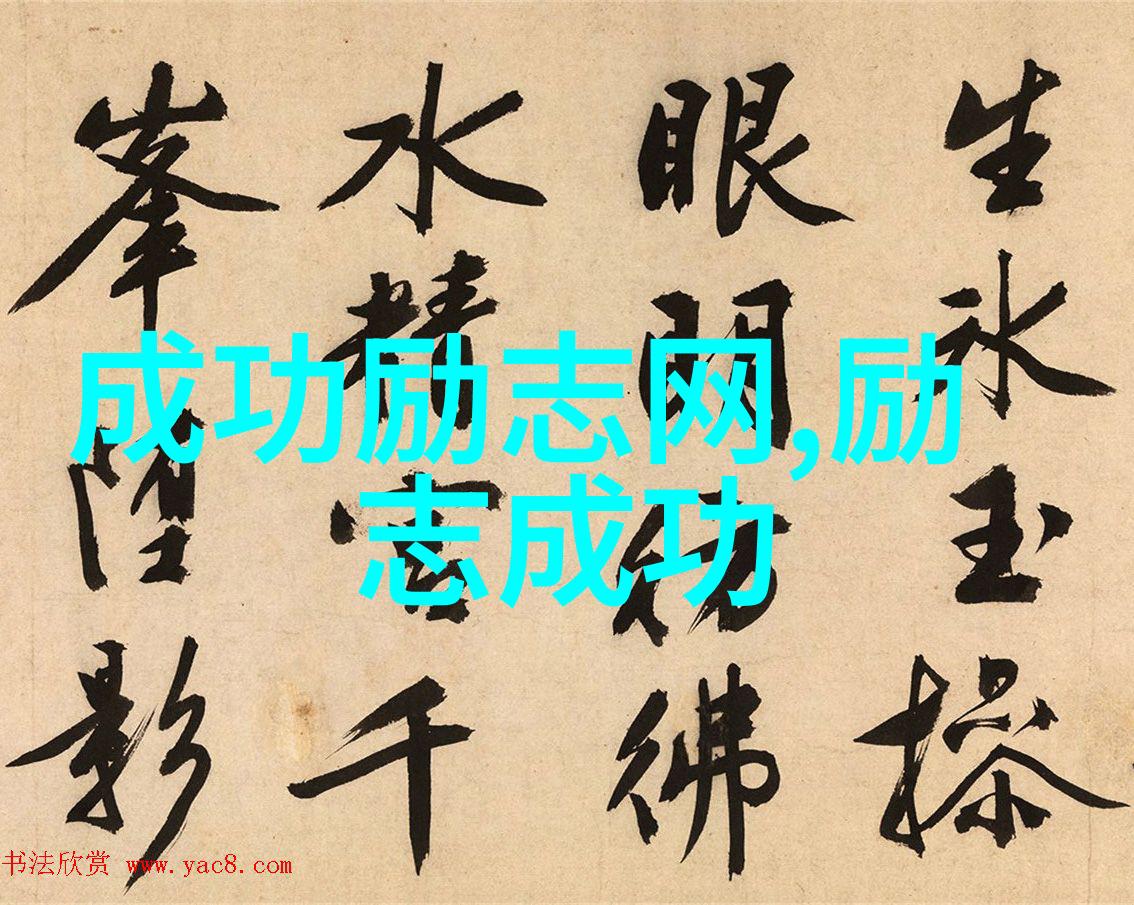 生氷玉操
眼明彷彿
水精宮千
峯堕影
成功励志网,励
志成功
书法欣赏 www.yac8.com